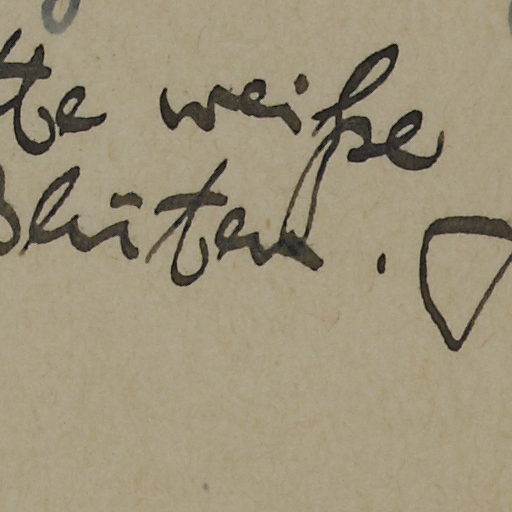 tte weiße
Blüten.